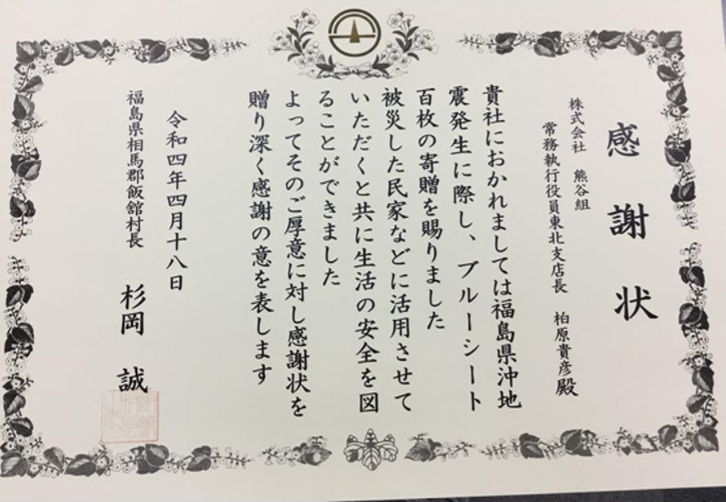 感謝状
株式会社 熊谷組
常務執行役員東北支店長 柏原貴彦殿
貴社におかれましては福島県沖地
震発生に際し、ブルーシート
百枚の寄贈を賜りました
被災した民家などに活用させて
いただくと共に生活の安全を図
ることができました
よってそのご厚意に対し感謝状を
贈り深く感謝の意を表します
令和四年四月十八日
福島県相馬郡飯舘村長 杉岡誠